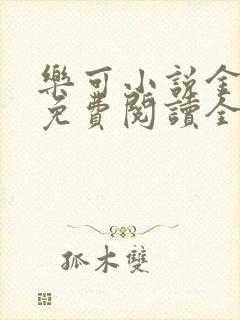 樂可小說全
免費閱讀全
孤木雙